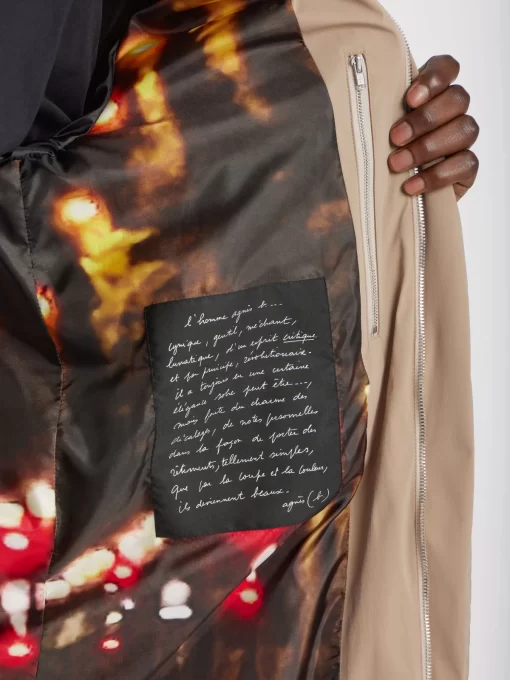 l'homme agnès b...
cynique, gentil, méchant,
lunatique, d'un esprit critique
et par principe, révolutionnaire.
il a toujours eu une certaine
élégance sobre peut être...,
mais faite du charme des
décalages, de notes personnelles
dans la façon de porter des
vêtements, tellement simples,
que par la coupe et la couleur,
ils deviennent beaux.
agnès (b)